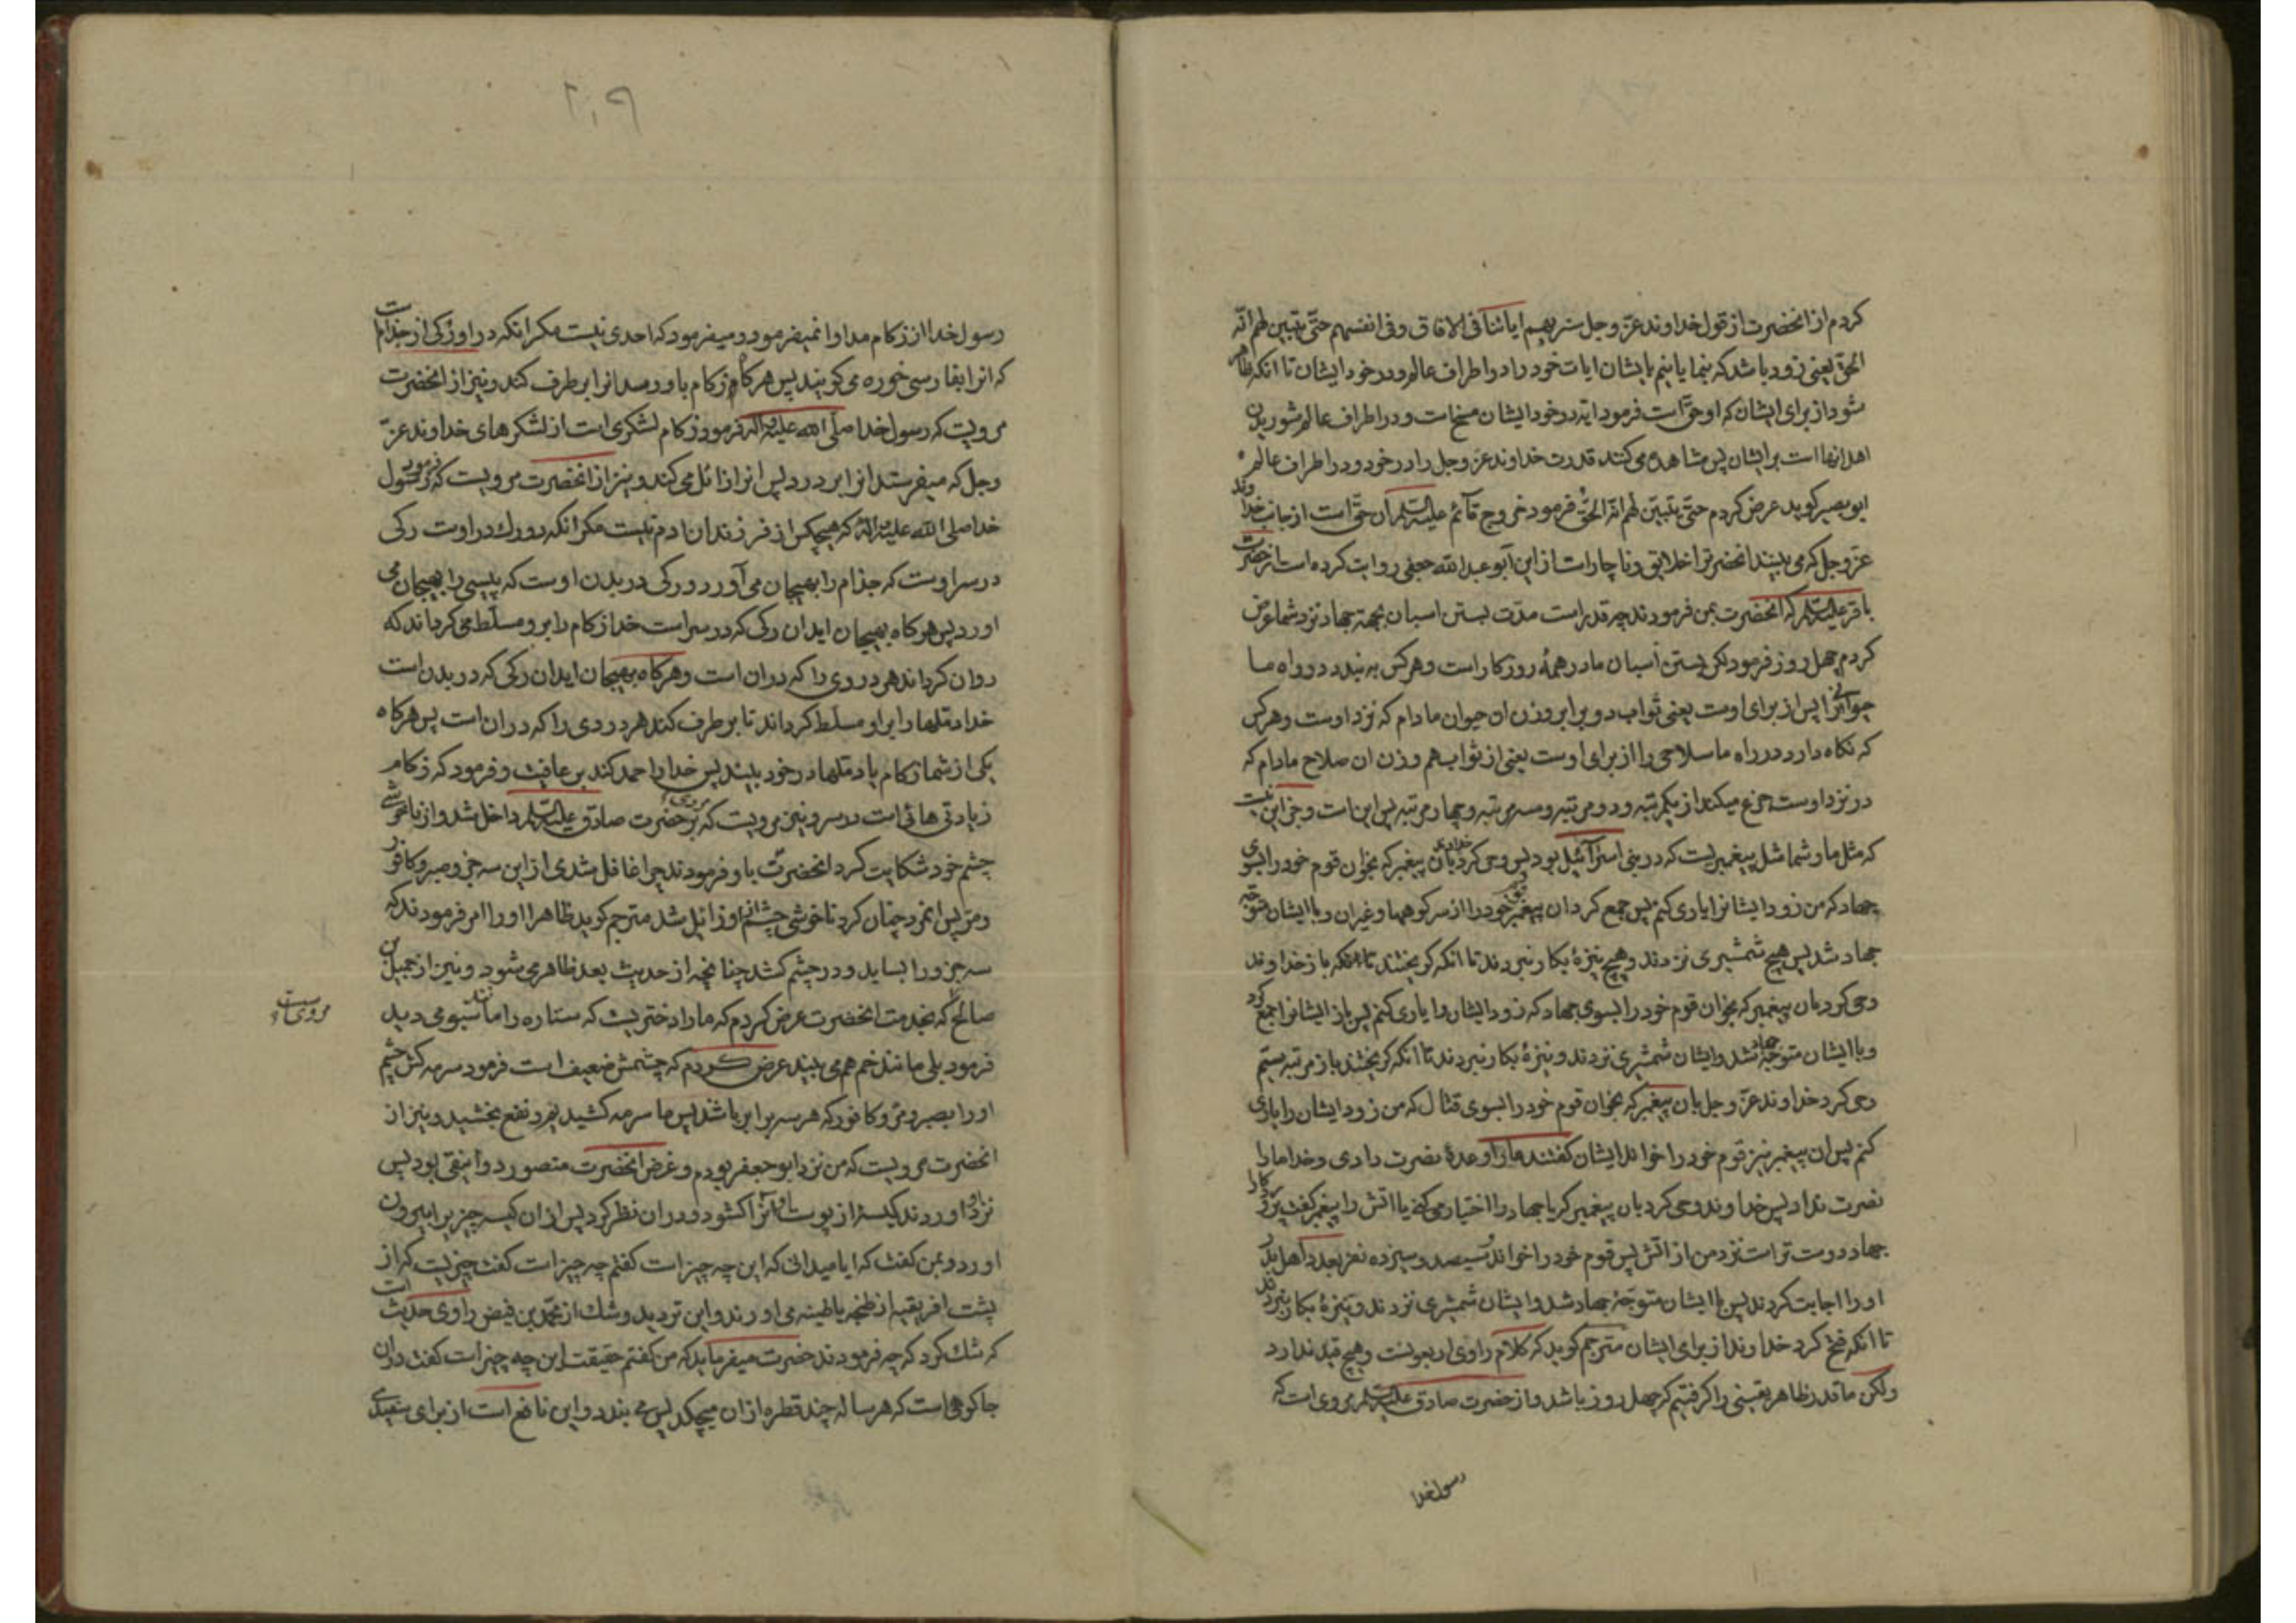 كردم از انحضرت از قول خداوند عزّ و جل سنريهم اياتنا فى الافاق و فى انفسهم حتّى يتبين لهم انّه
الحق يعنى زود باشد كه بنمايانيم بايشان ايات خود را در اطراف عالم و در خود ايشان تا انكه ظاهر
شود از براى ايشان كه او حقّ است فرمود ايه در خود ايشان مسخ است و در اطراف عالم شوريدن
اهل انها است بر ايشان پس مشاهده مى كنند قدرت خداوند عز و جل را در خود و در اطراف عالم
ابو بصير كويد عرض كردم حتّى يتبيّن لهم انّه الحقّ فرمود خروج قآئم عليه السلم ان حقّ است از جانب خداوند
عز و جل كه مى بينند انحضرترا خلايق و ناچار است از اين ابو عبد الله جعفى روايت كرده است از حضرت
باقر عليه السلم كه انحضرت بمن فرمودند چه قدر است مدّت بستن اسبان بجهة جهاد نزد شما عرض
كردم چهل روز فرمود لكن بستن اسبان ما در همهٔ روزكار است و هركس به بندد در راه ما
حيوانى را پس از براى اوست يعنى ثواب دو برابر وزن ان حيوان مادام كه نزد اوست و هركس
كه نكاه دارد در راه ما سلاحى را از براى اوست يعنى از ثواب هم وزن ان صلاح مادام كه
در نزد اوست جزع ميكند از يكمرتبه و دو مرتبه و سه مرتبه و چهار مرتبه پس اين است و جز اين نيست
كه مثل ما و شما مثل پيغمبريست كه در بنى اسرآئيل بود پس وحى كرد خداى بان پيغمبر كه بخوان قوم خود را بسوى
جهاد كه من زود ايشانرا يارى كنم پس جمع كرد ان پيغمبر قوم خود را از سر كوهها و غير ان و با ايشان متوجّه
جهاد شد پس هيچ شمشيرى نزدند و هيچ نيزهٔ بكار نبردند تا انكه كريختند تا انكه باز خداوند
وحى كرد بان پيغمبر كه بخوان قوم خود را بسوى جهاد كه زود ايشان را يارى كنم پس باز ايشانرا جمع كرد
و با ايشان متوجّه جهاد شد و ايشان شمشيرى نزدند و نيزهٔ بكار نبردند تا انكه كريختند باز مرتبه سيّم
وحى كرد خداوند عزّ و جل بان پيغمبر كه بخوان قوم خود را بسوى قتال كه من زود ايشان را يارى
كنم پس ان پيغمبر نيز قوم خود را خواند ايشان كفتند ما را وعدهٔ نصرت دادى و خدا ما را
نصرت نداد پس خداوند وحى كرد بان پيغمبر كه يا جهاد را اختيار مى كنى يا اتش را پيغمبر كفت پروردكارا
جهاد دوست تر است نزد من از اتش پس قوم خود را خواند سيصد و سيزده نفر بعدد اهل بدر
او را اجابت كردند پس با ايشان متوجّه جهاد شد و ايشان شمشيرى نزدند و نيزهٔ بكار نبردند
تا انكه فتح كرد خداوند از براى ايشان مترجم كويد كه كلام راوى اربعونست و هيچ قيد ندارد
ولكن ما قدر ظاهر يقينى را كرفتيم كه چهل روز باشد و از حضرت صادق عليه السلم مروى است كه
رسولخدا
٢٠٩
رسول خدا از زكام مداوا نميفرمود و ميفرمود كه احدى نيست مكر انكه در او ركى از جذام است
كه انرا بفارسى خوره مى كويند پس هركاه زكام باو رسد انرا بر طرف كند و نيز از انحضرت
مرويست كه رسول خدا صلّى الله عليه و اله فرمود زكام لشكرى است از لشكرهاى خداوند عزّ
و جل كه ميفرستد انرا بر درد پس انرا زائل مى كند و نيز از انحضرت مرويست كه فرمود رسول
خدا صلى الله عليه و اله كه هيچكس از فرزندان ادم نيست مكر انكه دو رك در اوست ركى
در سر اوست كه جذام را بهيجان مى آورد و ركى در بدن اوست كه پيسى را بهيجان مى
اورد پس هركاه بهيجان ايد ان ركى كه در سر است خدا زكام را بر او مسلّط مى كرداند كه
روان كرداند هر دردى را كه در ان است و هركاه بهيجان ايد ان ركى كه در بدن است
خدا دملها را بر او مسلّط كرداند تا بر طرف كند هر دردى را كه در ان است پس هركاه
يكى از شما زكام يا دملها در خود بيند پس خدا را حمد كند بر عافيت و فرمود كه زكام
زيادتى هائى است در سر و نيز مرويست كه مردى بر حضرت صادق عليه السلم داخل شد و از ناخوشى
چشم خود شكايت كرد انحضرت باو فرمودند چرا غافل شدى از اين سه جزو صبر و كافور
و مرّ پس انمرد چنان كرد ناخوشى چشم از او زائل شد مترجم كويد ظاهرا او را امر فرمودند كه
سه جزو را بسايد و در چشم كشد چنانچه از حديث بعد ظاهر مى شود و نيز از جميل بن
صالح كه بخدمت انحضرت عرض كردم كه ما را دختريست كه ستاره را مانند سبو مى ديد
مرويست
فرمود بلى مانند خم هم مى بيند عرض كردم كه چشمش ضعيف است فرمود سرمه كش چشم
او را بصبر و مرّ و كافور كه هر سه برابر باشد پس ما سرمه كشيديم و نفع بخشيد و نيز از
انحضرت مرويست كه من نزد ابو جعفر بودم و غرض انحضرت منصور دوانيقى بود پس
نزد او اوردند كيسهٔ از پوست او انرا كشود و در ان نظر كرد پس از ان كيسه چيزيرا بيرون
اورد و بمن كفت كه ايا ميدانى كه اين چه چيز است كفتم چه چيز است كفت چيزيست كه از
پشت افريقيه از طنجه يا طينه مى اورند و اين ترديد و شك از محمّد بن فيض راوى حديث است
كه شك كرد كه چه فرمودند حضرت ميفرمايد كه من كفتم حقيقت اين چه چيز است كفت در ان
جا كوهى است كه هر ساله چند قطره از ان ميچكد پس مى بندد و اين نافع است از براى سفيدى